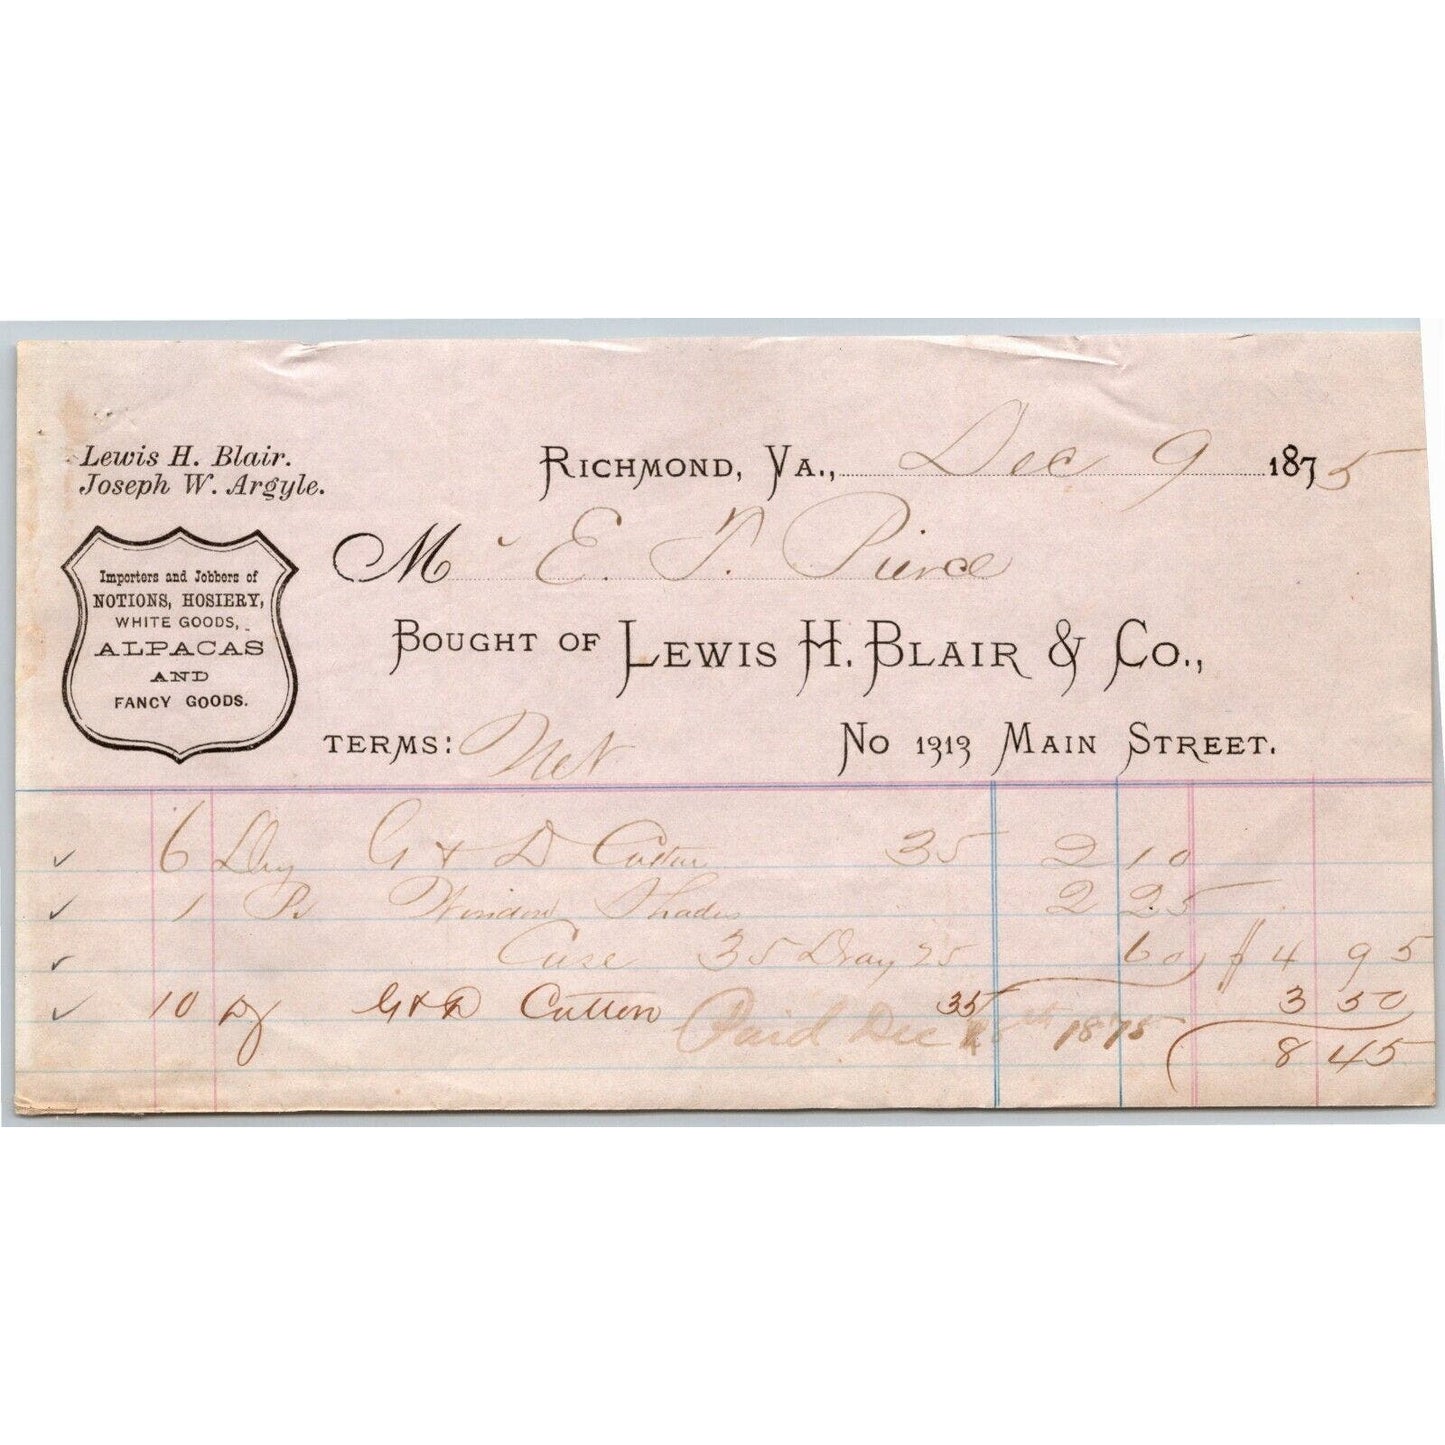 Lewis H. Blair.
Joseph W. Argyle.
RICHMOND, VA., Dec 9 1875
M E. T. Pierce
Importers and Jobbers of
NOTIONS, HOSIERY,
WHITE GOODS,
ALPACAS
AND
FANCY GOODS.
BOUGHT OF LEWIS H. BLAIR & CO.,
TERMS: Net
No 1313 MAIN STREET.
6 G & D Cotton 35 2 10
1 Ps Window Shades 2 25
Case 35 Dray 25 60 $ 4 95
10 Dz G & D Cotton 35 3 50
Paid Dec 1875 8 45